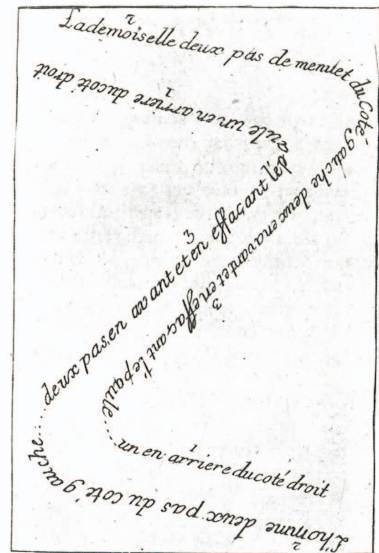 2
Lademoiselle deux pas de menuet du Coté-gauche deux en avant et en effacant l'épaule....
3
1
un en arriere du coté droit
2
L'homme deux pas du coté gauche....deux pas en avant et en effacant l'épaule un en arriere du coté droit
3
1